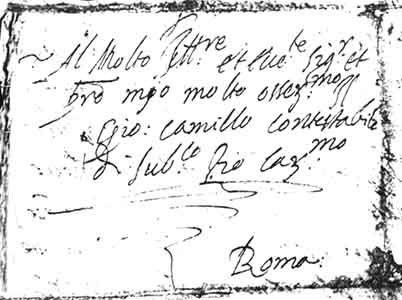 Al Molto Ill.tre et Ecc.te Sig.r et
pro mio molto osser.mo
Gio: Camillo Contestabile
Sub.co Rio Car.mo
Roma